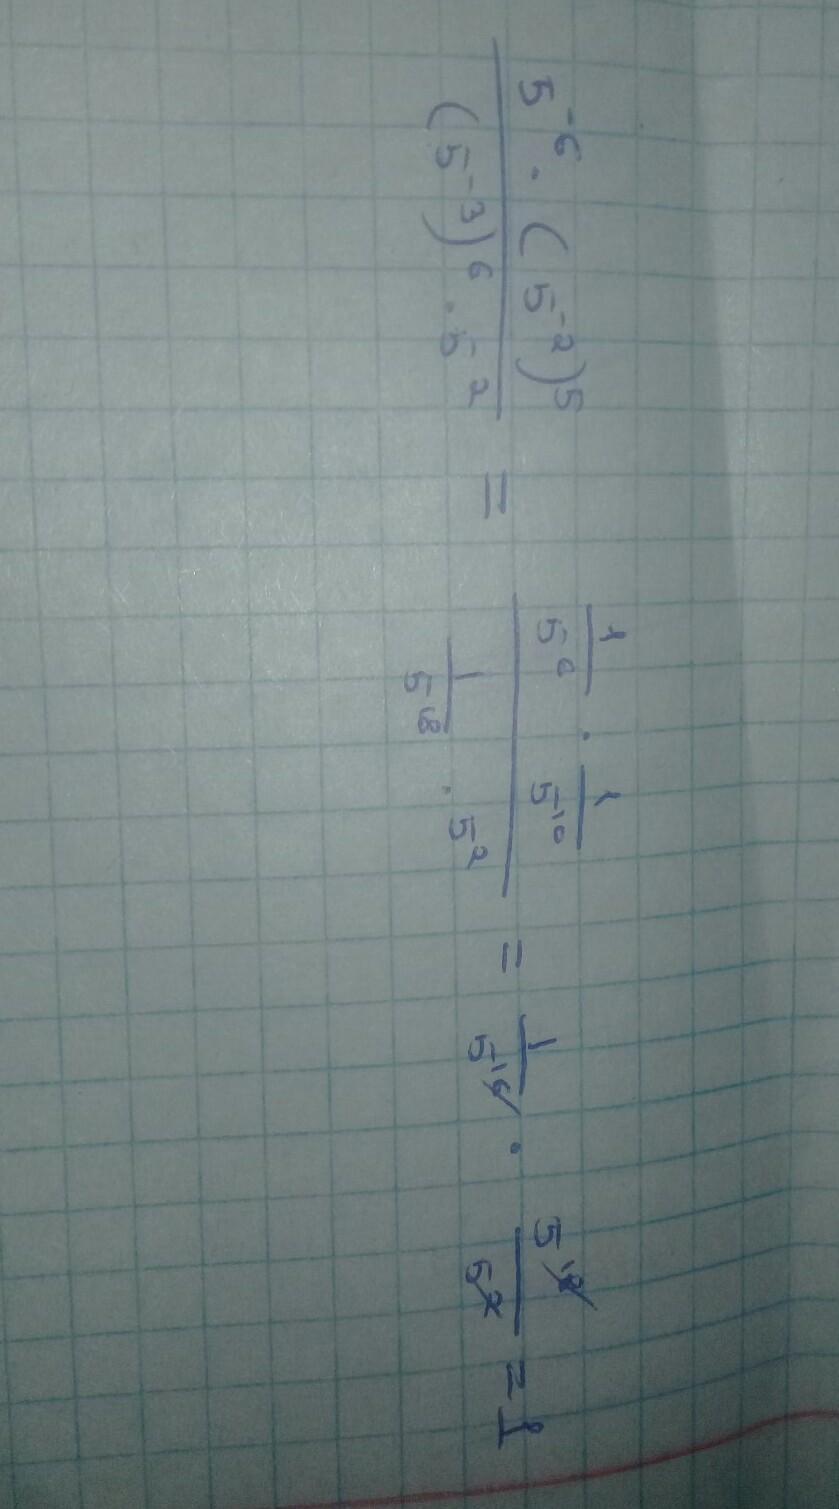 5⁻⁶ · (5⁻²)⁵ / (5⁻³)⁶ · 5² = 1/5⁶ · 1/5¹⁰ / 1/5¹⁸ · 5² = 1/5¹⁶ · 5¹⁸/5² = 1